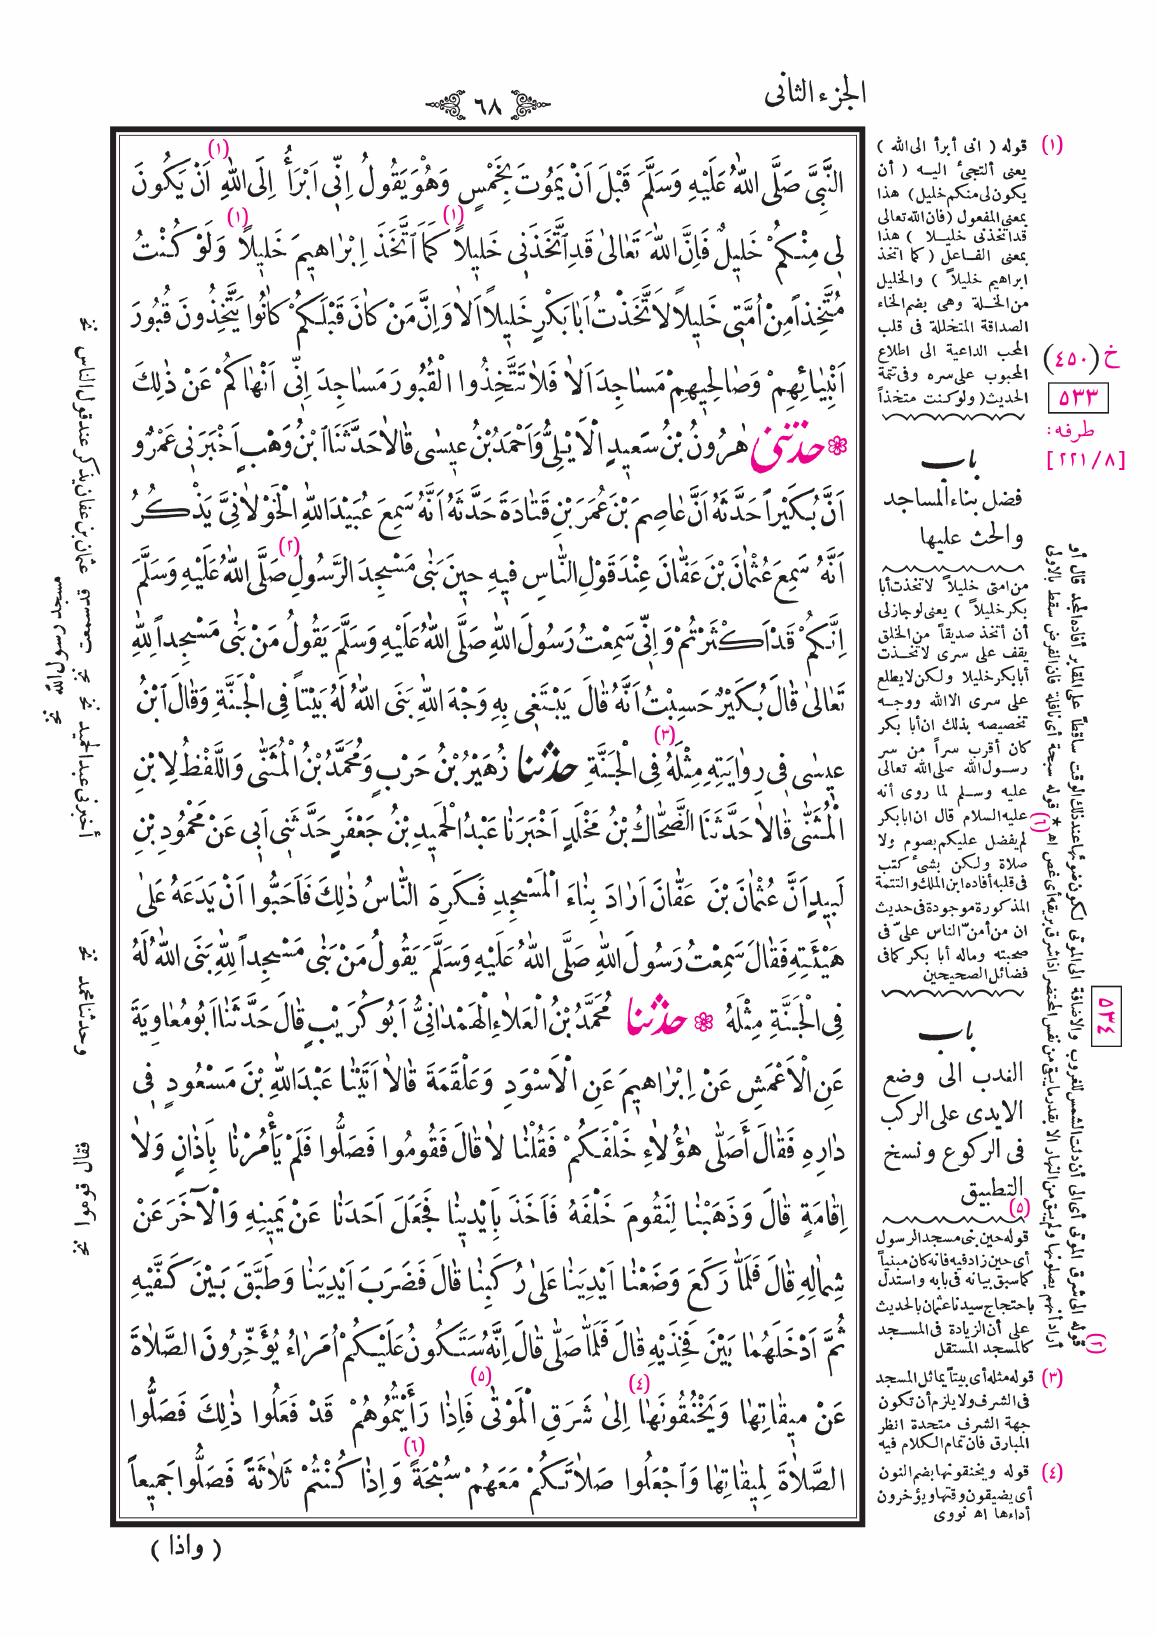 الجزء الثانى
٦٨
النَّبِىَّ صَلَّى اللهُ عَلَيْهِ وَسَلَّمَ قَبْلَ اَنْ يَمُوتَ بِخَمْسٍ وَهُوَ يَقُولُ اِنِّى اَبْرَأُ اِلَى اللهِ اَنْ يَكُونَ (١)
لِى مِنْكُمْ خَلِيلٌ فَاِنَّ اللهَ تَعَالىٰ قَدِ اتَّخَذَنِى خَلِيلاً (١) كَمَا اتَّخَذَ اِبْرَاهِيمَ خَلِيلاً (١) وَلَوْ كُنْتُ
مُتَّخِذاً مِنْ اُمَّتِى خَلِيلاً لَاتَّخَذْتُ اَبَا بَكْرٍ خَلِيلاً اَلَا وَاِنَّ مَنْ كَانَ قَبْلَكُمْ كَانُوا يَتَّخِذُونَ قُبُورَ
اَنْبِيَائِهِمْ وَصَالِحِيهِمْ مَسَاجِدَ اَلَا فَلَا تَتَّخِذُوا الْقُبُورَ مَسَاجِدَ اِنِّى اَنْهَاكُمْ عَنْ ذٰلِكَ
حَدَّثَنِى هٰرُونُ بْنُ سَعِيدٍ الْاَيْلِىُّ وَاَحْمَدُ بْنُ عِيسٰى قَالَا حَدَّثَنَا ابْنُ وَهْبٍ اَخْبَرَنِى عَمْرٌو
اَنَّ بُكَيْراً حَدَّثَهُ اَنَّ عَاصِمَ بْنَ عُمَرَ بْنِ قَتَادَةَ حَدَّثَهُ اَنَّهُ سَمِعَ عُبَيْدَ اللهِ الْخَوْلَانِىَّ يَذْكُرُ
اَنَّهُ سَمِعَ عُثْمَانَ بْنَ عَفَّانَ عِنْدَ قَوْلِ النَّاسِ فِيهِ حِينَ بَنٰى مَسْجِدَ الرَّسُولِ (٢) صَلَّى اللهُ عَلَيْهِ وَسَلَّمَ
اِنَّكُمْ قَدْ اَكْثَرْتُمْ وَاِنِّى سَمِعْتُ رَسُولَ اللهِ صَلَّى اللهُ عَلَيْهِ وَسَلَّمَ يَقُولُ مَنْ بَنٰى مَسْجِداً لِلّٰهِ
تَعَالىٰ قَالَ بُكَيْرٌ حَسِبْتُ اَنَّهُ قَالَ يَبْتَغِى بِهِ وَجْهَ اللهِ بَنَى اللهُ لَهُ بَيْتاً فِى الْجَنَّةِ وَقَالَ ابْنُ
عِيسٰى فِى رِوَايَتِهِ مِثْلَهُ (٣) فِى الْجَنَّةِ حَدَّثَنَا زُهَيْرُ بْنُ حَرْبٍ وَمُحَمَّدُ بْنُ الْمُثَنّٰى وَاللَّفْظُ لِابْنِ
الْمُثَنّٰى قَالَا حَدَّثَنَا الضَّحَّاكُ بْنُ مَخْلَدٍ اَخْبَرَنَا عَبْدُ الْحَمِيدِ بْنُ جَعْفَرٍ حَدَّثَنِى اَبِى عَنْ مَحْمُودِ بْنِ
لَبِيدٍ اَنَّ عُثْمَانَ بْنَ عَفَّانَ اَرَادَ بِنَاءَ الْمَسْجِدِ فَكَرِهَ النَّاسُ ذٰلِكَ فَاَحَبُّوا اَنْ يَدَعَهُ عَلىٰ
هَيْئَتِهِ فَقَالَ سَمِعْتُ رَسُولَ اللهِ صَلَّى اللهُ عَلَيْهِ وَسَلَّمَ يَقُولُ مَنْ بَنٰى مَسْجِداً لِلّٰهِ بَنَى اللهُ لَهُ
فِى الْجَنَّةِ مِثْلَهُ حَدَّثَنَا مُحَمَّدُ بْنُ الْعَلَاءِ الْهَمْدَانِىُّ اَبُو كُرَيْبٍ قَالَ حَدَّثَنَا اَبُو مُعَاوِيَةَ
عَنِ الْاَعْمَشِ عَنْ اِبْرَاهِيمَ عَنِ الْاَسْوَدِ وَعَلْقَمَةَ قَالَا اَتَيْنَا عَبْدَ اللهِ بْنَ مَسْعُودٍ فِى
دَارِهِ فَقَالَ أَصَلّٰى هٰؤُلَاءِ خَلْفَكُمْ فَقُلْنَا لَا قَالَ فَقُومُوا فَصَلُّوا فَلَمْ يَأْمُرْنَا بِاَذَانٍ وَلَا
اِقَامَةٍ قَالَ وَذَهَبْنَا لِنَقُومَ خَلْفَهُ فَاَخَذَ بِاَيْدِينَا فَجَعَلَ اَحَدَنَا عَنْ يَمِينِهِ وَالْآخَرَ عَنْ
شِمَالِهِ قَالَ فَلَمَّا رَكَعَ وَضَعْنَا اَيْدِيَنَا عَلىٰ رُكَبِنَا قَالَ فَضَرَبَ اَيْدِيَنَا وَطَبَّقَ بَيْنَ كَفَّيْهِ
ثُمَّ اَدْخَلَهُمَا بَيْنَ فَخِذَيْهِ قَالَ فَلَمَّا صَلّٰى قَالَ اِنَّهُ سَتَكُونُ عَلَيْكُمْ اُمَرَاءُ يُؤَخِّرُونَ الصَّلَاةَ
عَنْ مِيقَاتِهَا وَيَخْنُقُونَهَا (٤) اِلىٰ شَرَقِ الْمَوْتٰى (٥) فَاِذَا رَأَيْتُمُوهُمْ قَدْ فَعَلُوا ذٰلِكَ فَصَلُّوا
الصَّلَاةَ لِمِيقَاتِهَا وَاجْعَلُوا صَلَاتَكُمْ مَعَهُمْ سُبْحَةً (٦) وَاِذَا كُنْتُمْ ثَلَاثَةً فَصَلُّوا جَمِيعاً
( واذا )
(١) قوله ( انى أبرأ الى الله )
يعنى ألتجئ اليه ( أن
يكون لى منكم خليل) هذا
بمعنى المفعول (فان الله تعالى
قد اتخذنى خليلا ) هذا
بمعنى الفاعل ( كما اتخذ
ابراهيم خليلاً ) والخليل
من الخلة وهى بضم الخاء
الصداقة المتخللة فى قلب
المحب الداعية الى اطلاع
المحبوب على سره وفى تتمة
الحديث ( ولو كنت متخذاً
خ (٤٥٠)
٥٣٣
طرفه :
[٢٢١/٨]
باب
فضل بناء المساجد
والحث عليها
من امتى خليلاً لاتخذت أبا
بكر خليلاً ) يعنى لو جاز لى
أن أتخذ صديقاً من الخلق
يقف على سرى لاتخذت
أبا بكر خليلا ولكن لا يطلع
على سرى الا الله ووجه
تخصيصه بذلك ان أبا بكر
كان أقرب سراً من سر
رسول الله صلى الله تعالى
عليه وسلم لما روى أنه
عليه السلام قال ان ابا بكر
لم يفضل عليكم بصوم ولا
صلاة ولكن بشئ كتب
فى قلبه أفاده ابن الملك والتتمة
المذكورة موجودة فى حديث
ان من أمنّ الناس علىّ فى
صحبته وماله أبا بكر كما فى
فضائل الصحيحين
٥٣٤
باب
الندب الى وضع
الايدى على الركب
فى الركوع ونسخ
التطبيق
قوله حين بنى مسجد الرسول
أى حين زاد فيه فانه كان مبنياً
كما سبق بيانه فى بابه واستدل
باحتجاج سيدنا عثمان بالحديث
على أن الزيادة فى المسجد
كالمسجد المستقل
(٣) قوله مثله أى بيتاً يماثل المسجد
فى الشرف ولا يلزم أن تكون
جهة الشرف متحدة انظر
المبارق فان تمام الكلام فيه
(٤) قوله ويخنقونها بضم النون
أى يضيقون وقتها ويؤخرون
أداءها اه نووى
(٢)
(٥)
قوله الى شرق الموتى أى الى أن دنت الشمس للغروب والاضافة الى الموتى لكون ضوئها عند ذلك الوقت ساقطاً على المقابر أفاده المجد قال أو
أراد أنهم يصلونها ولم يبق من النهار الا بقدر ما يبقى من نفس المحتضر اذا شرق بريقه أى غص اه * (٦) قوله سبحة أى نافلة فان الفرض سقط بالاولى
عثمان بن عفان يذكر عند قول الناس نخ
مسجد رسول الله نخ
قد سمعت نخ
أخبرنى عبد الحميد نخ
وحدثنا محمد نخ
فقال قوموا نخ